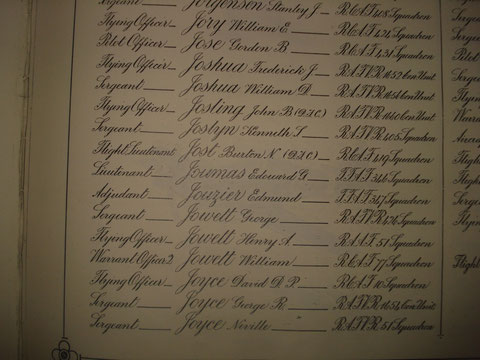 Sergeant Jorgenson Stanley J RCAF 408 Squadron
Flying Officer Jory William E RCAF 424 Squadron
Pilot Officer Jose Gordon B RCAF 431 Squadron
Flying Officer Joshua Frederick J RAFVR 1652 Con Unit
Sergeant Joshua William D RAFVR Con Unit
Flying Officer Josling John B (DFC) RAFVR Con Unit
Sergeant Joslyn Kenneth L RAFVR 405 Squadron
Flight Lieutenant Jost Burton N (DFC) RCAF 419 Squadron
Lieutenant Joumas Edouard G FFAF 346 Squadron
Adjudant Jouzier Edmund FFAF 347 Squadron
Sergeant Jowett George RAFVR Squadron
Flying Officer Jowett Henry A RAAF 51 Squadron
Warrant Officer 2 Jowett William RCAF 77 Squadron Flight
Flying Officer Joyce David D P RCAF 10 Squadron
Sergeant Joyce George R RAFVR Con Unit
Sergeant Joyce Neville RAFVR 51 Squadron